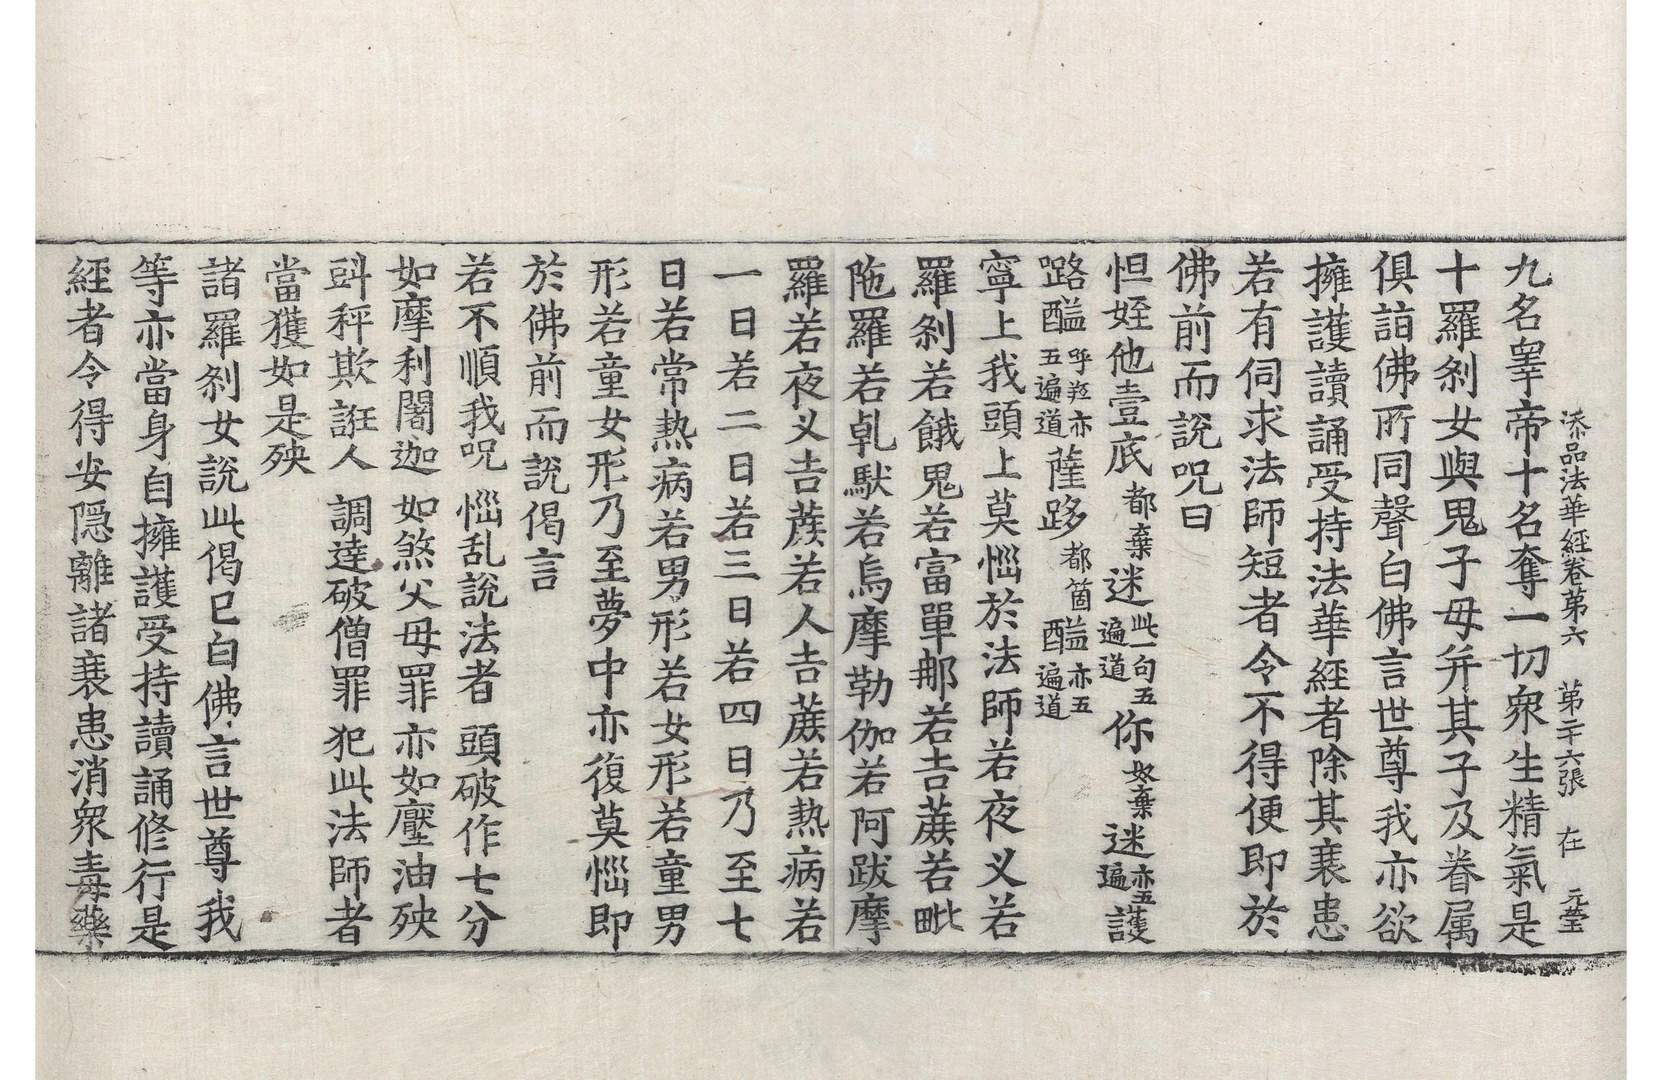 添品法華經卷第六　第二十六張　在　元瑩
九名睪帝十名奪一切衆生精氣是
十羅刹女與鬼子母并其子及眷属
俱詣佛所同聲白佛言世尊我亦欲
擁護讀誦受持法華經者除其衰患
若有伺求法師短者令不得便即於
佛前而說呪曰
怛姪他壹底都棄迷此一句五遍道你奴棄迷亦五遍護
𨁝醯呼羟亦五遍道薩跢都箇醯醯亦五遍道
寧上我頭上莫惱於法師若夜叉若
羅刹若餓鬼若富單那若吉蔗若毗
陁羅若乹馱若烏摩勒伽若阿跋摩
羅若夜叉吉蔗若人吉蔗若熱病若
一日若二日若三日若四日乃至七
日若常熱病若男形若女形若童男
形若童女形乃至夢中亦復莫惱即
於佛前而說偈言
若不順我呪　惱乱說法者　頭破作七分
如摩利闍迦　如煞父母罪　亦如壓油殃
㪷秤欺誑人　調達破僧罪　犯此法師者
當獲如是殃
諸羅刹女說此偈已白佛言世尊我
等亦當身自擁護受持讀誦修行是
經者令得安隱離諸衰患消衆毒藥